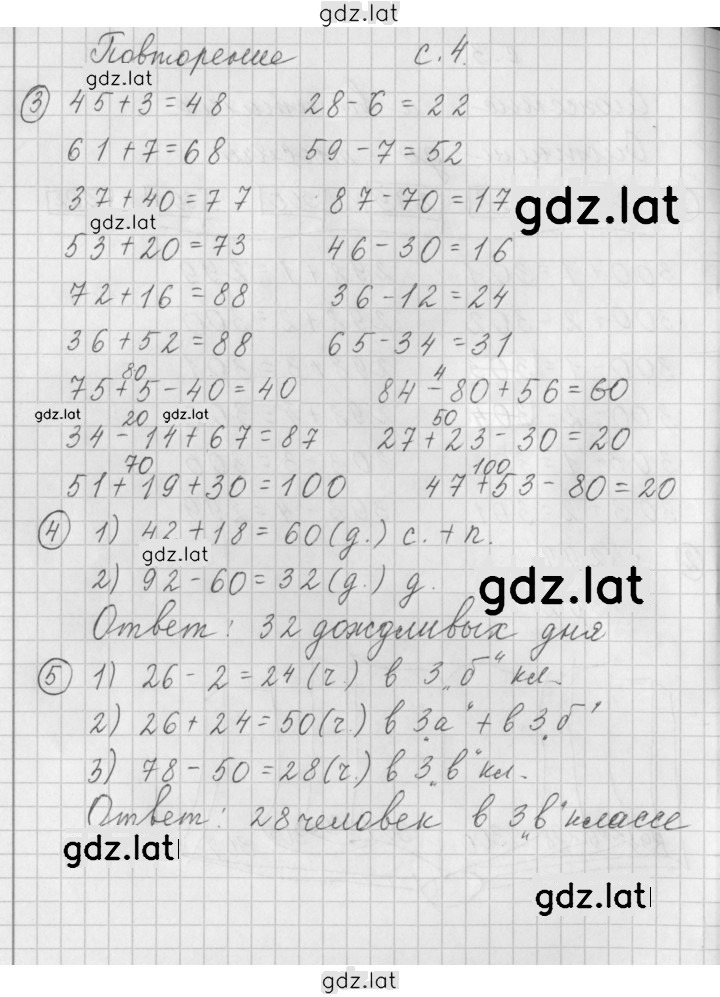 gdz.lat
Повторение с.4.
gdz.lat
③ 45+3=48 28-6=22
61+7=68 59-7=52
37+40=77 87-70=17
gdz.lat
gdz.lat
53+20=73 46-30=16
72+16=88 36-12=24
36+52=88 65-34=31
80 4
75+5-40=40 84-80+56=60
gdz.lat gdz.lat
20 50
34-14+67=87 27+23-30=20
70 100
51+19+30=100 47+53-80=20
④ 1) 42+18=60(д.) с.+п.
gdz.lat
2) 92-60=32(д.) д.
gdz.lat
Ответ: 32 дождливых дня
⑤ 1) 26-2=24(ч.) в 3„б" кл.
2) 26+24=50(ч.) в 3„а"+в 3„б"
3) 78-50=28(ч.) в 3„в" кл.
Ответ: 28 человек в 3„в" классе
gdz.lat
gdz.lat
gdz.lat